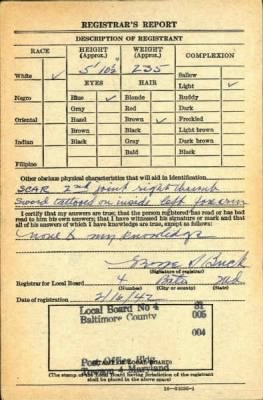 REGISTRAR'S REPORT
DESCRIPTION OF REGISTRANT
RACE HEIGHT (Approx.) WEIGHT (Approx.) COMPLEXION
5' 10½" 235
White ✓ Sallow
EYES HAIR Light ✓
Negro Blue ✓ Blonde Ruddy
Gray Red Dark
Oriental Hazel Brown ✓ Freckled
Brown Black Light brown
Indian Black Gray Dark brown
Bald Black
Filipino
Other obvious physical characteristics that will aid in identification
SCAR 2nd joint right thumb
Sword tattooed on inside left forearm
I certify that my answers are true; that the person registered has read or has had
read to him his own answers; that I have witnessed his signature or mark and that
all of his answers of which I have knowledge are true, except as follows:
None to my knowledge
Buck
(Signature of registrar)
Registrar for Local Board 4 Balto Md.
(Number) (City or county) (State)
Date of registration 2/16/42
Local Board No 4 81
Baltimore County 005
004
Post Office Bldg.
Maryland
(STAMP OF LOCAL BOARD)
(The stamp of the Local Board having jurisdiction of the registrant
shall be placed in the above space)